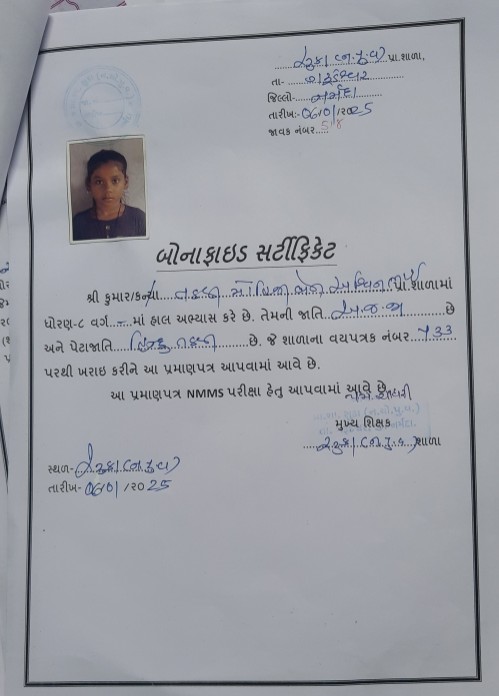 પ્રા.શાળા,
તા-
જિલ્લો- નર્મદા
તારીખ:- 06/10/૨૦25
જાવક નંબર....58
બોનાફાઇડ સર્ટીફિકેટ
શ્રી કુમાર/કન્યા તડવી અશ્વિનભાઈ પ્રા.શાળામાં
ધોરણ-૮ વર્ગ - માં હાલ અભ્યાસ કરે છે. તેમની જાતિ અ.જ.જા છે
અને પેટાજાતિ હિન્દુ તડવી છે. જે શાળાના વયપત્રક નંબર 733
પરથી ખરાઇ કરીને આ પ્રમાણપત્ર આપવામાં આવે છે.
આ પ્રમાણપત્ર NMMS પરીક્ષા હેતુ આપવામાં આવે છે.
મુખ્ય શિક્ષક
શાળા
સ્થળ-
તારીખ- 06/10/૨૦25